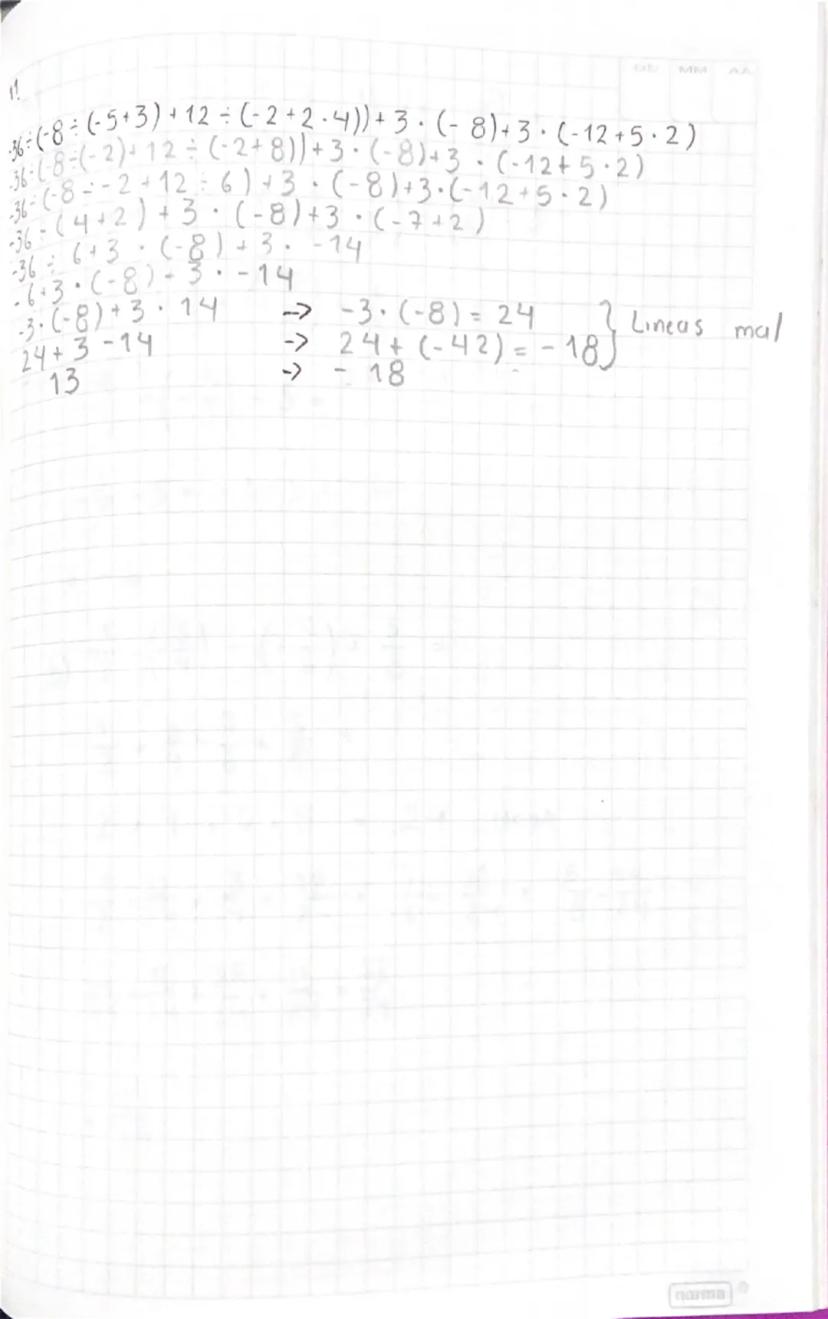 DD MM AA
11
-36÷(-8÷(-5+3)+12÷(-2+2·4))+3·(-8)+3·(-12+5·2)
-36÷(-8÷(-2)+12÷(-2+8))+3·(-8)+3·(-12+5·2)
-36÷(-8÷-2+12÷6)+3·(-8)+3·(-12+5·2)
-36÷(4+2)+3·(-8)+3·(-7+2)
-36÷6+3·(-8)+3·-14
-6+3·(-8)+3·-14
-3·(-8)+3·14 -> -3·(-8)=24
24+3-14 -> 24+(-42)=-18 } Lineas mal
13 -> -18
norma